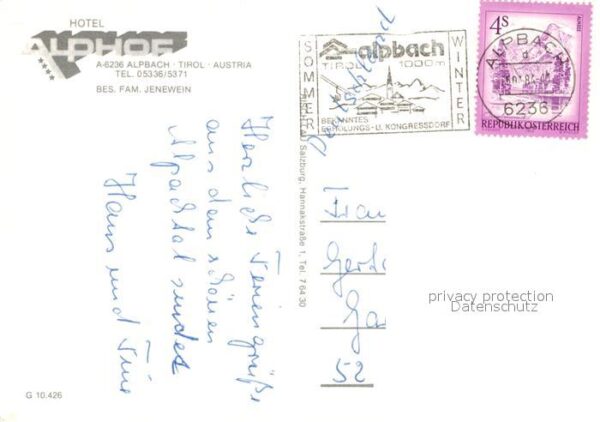 HOTEL
ALPHOF
A-6236 ALPBACH · TIROL · AUSTRIA
TEL. 05336/5371
BES. FAM. JENEWEIN
SOMMER
alpbach
TIROL 1000m
BEKANNTES
ERHOLUNGS- U. KONGRESSDORF
WINTER
4S
ALMSEE
REPUBLIK ÖSTERREICH
ALPBACH
6236
Herzliche Feriengrüße
aus dem schönen
Alpachtal senden
Hans und Tine
Salzburg, Hannakstraße 1, Tel. 7 64 30
Frau
Gert
Ga
52
privacy protection
Datenschutz
G 10.426